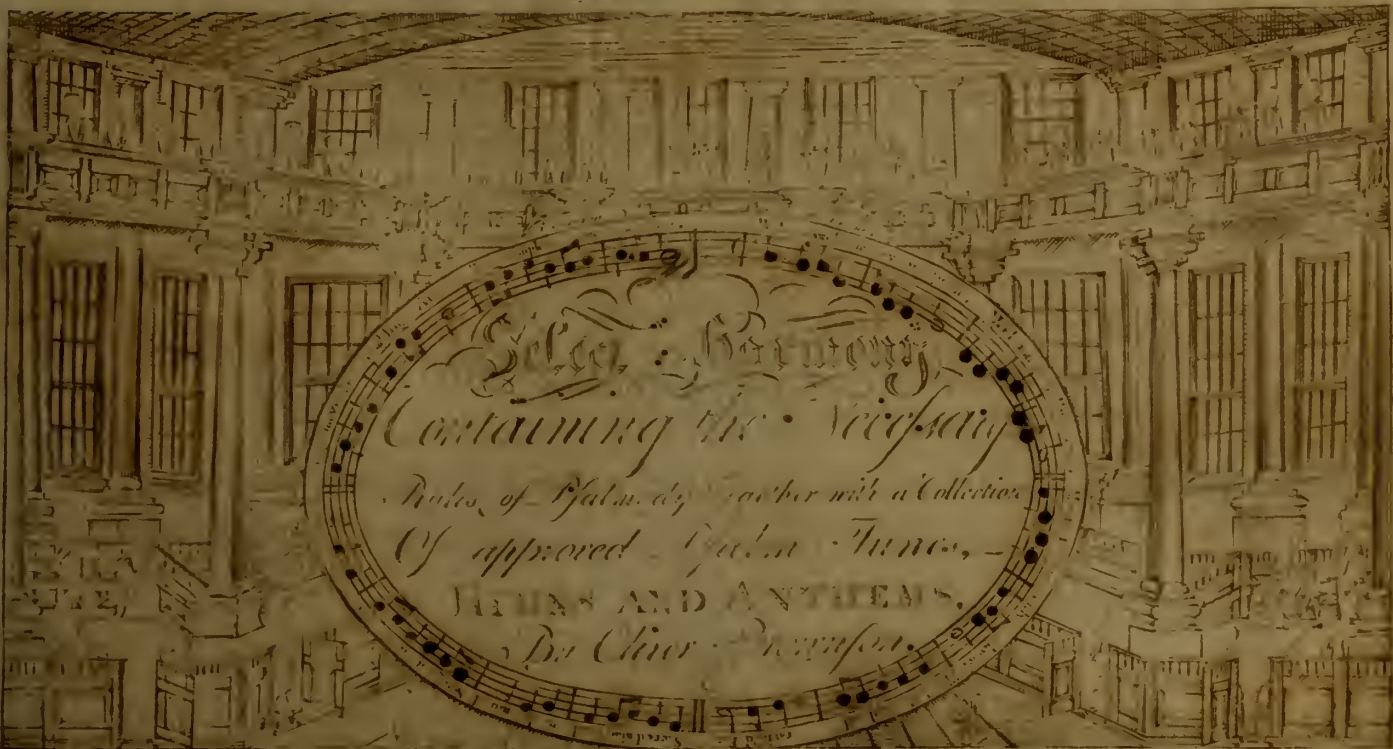 Select Harmony
Containing the Necessary
Rules of Psalmody Together with a Collection
Of approved Psalm Tunes,
HYMNS AND ANTHEMS,
By Oliver Brownson.